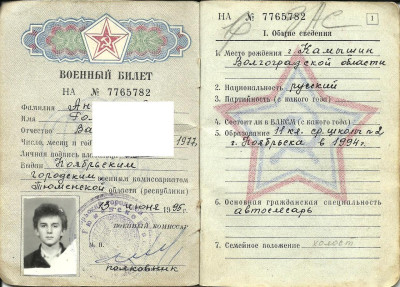 ВОЕННЫЙ БИЛЕТ
НА № 7765782
Фамилия Ан
Имя
Отчество Ва
Число, месяц и год 1977,
Личная подпись
Выдан Ноябрьским
городским военным комиссариатом
Тюменской области (республики)
23 июня 1995 г.
ВОЕННЫЙ КОМИССАР
М. П.
полковник
НА № 7765782
ЗАС
1
I. Общие сведения
1. Место рождения г. Камышин
Волгоградской области
2. Национальность русский
3. Партийность (с какого года)
4. Состоит ли в ВЛКСМ (с какого года)
5. Образование 11 кл. ср. школы № 2
г. Ноябрьска в 1994 г.
6. Основная гражданская специальность
автослесарь
7. Семейное положение холост